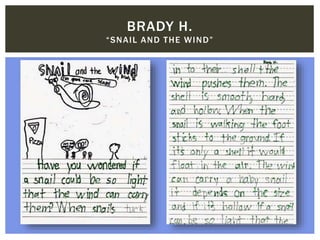 BRADY H.
"SNAIL AND THE WIND"
SNAIL and the WIND
Pizza
Have you wondered if
a snail could be so light
that the wind can carry
them? When snails tuck
in to their shell the
wind pushes them. The
shell is smooth, hard,
and hollow. When the
snail is walking the foot
sticks to the ground. If
its only a shell it would
float in the air. The wind
can carry a baby snail
it depends on the size
and if it is hollow. If a snail
can be so light that the